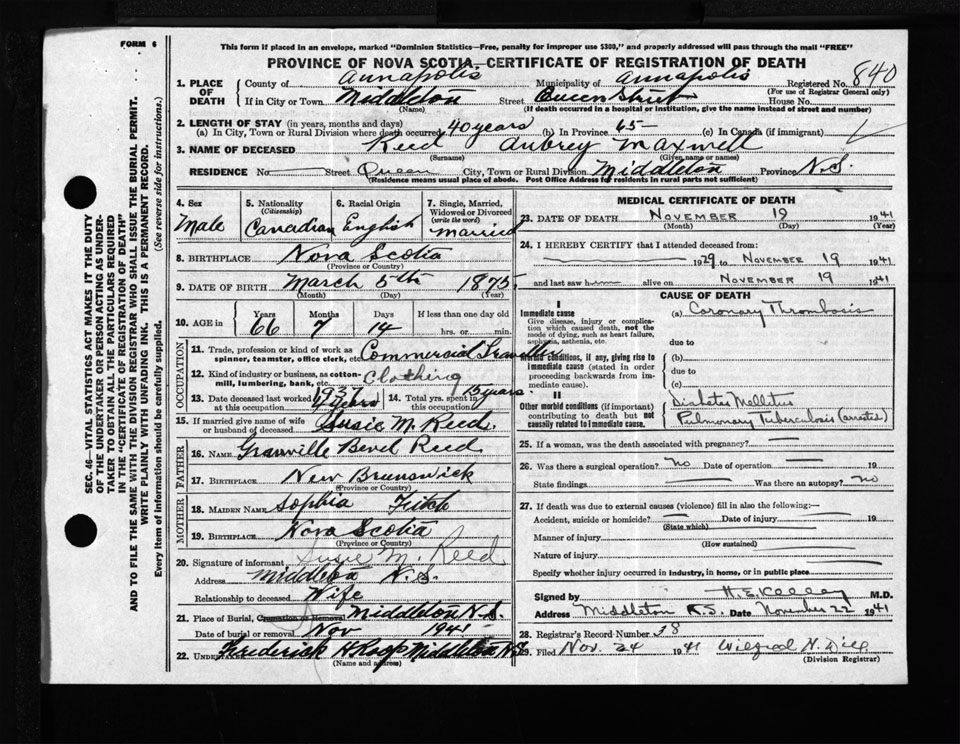 FORM 6
This form if placed in an envelope, marked "Dominion Statistics—Free, penalty for improper use $300," and properly addressed will pass through the mail "FREE"
PROVINCE OF NOVA SCOTIA—CERTIFICATE OF REGISTRATION OF DEATH
SEC. 46—VITAL STATISTICS ACT MAKES IT THE DUTY
OF THE UNDERTAKER OR PERSON ACTING AS UNDER-
TAKER TO OBTAIN ALL THE PARTICULARS REQUIRED
IN THE "CERTIFICATE OF REGISTRATION OF DEATH"
AND TO FILE THE SAME WITH THE DIVISION REGISTRAR WHO SHALL ISSUE THE BURIAL PERMIT.
WRITE PLAINLY WITH UNFADING INK. THIS IS A PERMANENT RECORD.
Every item of Information should be carefully supplied. (See reverse side for instructions.)
1. PLACE OF DEATH County of Annapolis Municipality of Annapolis Registered No. 840
(For use of Registrar General only)
If in City or Town Middleton Street Queen Street House No.
(Name) (If death occurred in a hospital or institution, give the name instead of street and number)
2. LENGTH OF STAY (in years, months and days)
(a) In City, Town or Rural Division where death occurred 40 years (b) In Province 65 — (c) In Canada (if immigrant)
3. NAME OF DECEASED Reed Aubrey Maxwell
(Surname) (Given name or names)
RESIDENCE No. Street Queen City, Town or Rural Division Middleton Province N.S.
(Residence means usual place of abode. Post Office Address for residents in rural parts not sufficient)
4. Sex Male
5. Nationality (Citizenship) Canadian
6. Racial Origin English
7. Single, Married, Widowed or Divorced (write the word) Married
8. BIRTHPLACE Nova Scotia
(Province or Country)
9. DATE OF BIRTH March 5th 1875
(Month) (Day) (Year)
10. AGE in Years 66 Months 7 Days 14 If less than one day old
hrs. or min.
OCCUPATION
11. Trade, profession or kind of work as spinner, teamster, office clerk, etc. Commercial Traveller
12. Kind of industry or business, as cotton-mill, lumbering, bank, etc. Clothing
13. Date deceased last worked at this occupation 1937
14. Total yrs. spent in this occupation years
15. If married give name of wife or husband of deceased Susie M. Reed
FATHER
16. NAME Granville Reed
17. BIRTHPLACE New Brunswick
(Province or Country)
MOTHER
18. MAIDEN NAME Sophia
19. BIRTHPLACE Nova Scotia
(Province or Country)
20. Signature of informant Susie M. Reed
Address Middleton N.S.
Relationship to deceased Wife
21. Place of Burial, Cremation or Removal Middleton N.S.
Date of burial or removal Nov 1941
22. UNDERTAKER Frederick H Roop Middleton N.S.
(Name and address)
MEDICAL CERTIFICATE OF DEATH
23. DATE OF DEATH November 19 1941
(Month) (Day)
24. I HEREBY CERTIFY that I attended deceased from:
1929 to November 19 1941
and last saw him alive on November 19 1941
CAUSE OF DEATH
I
Immediate cause
Give disease, injury or complication which caused death, not the mode of dying, such as heart failure, asphyxia, asthenia, etc.
(a) Coronary Thrombosis
due to
Morbid conditions, if any, giving rise to immediate cause (stated in order proceeding backwards from immediate cause).
(b)
due to
(c)
II
Other morbid conditions (if important) contributing to death but not causally related to immediate cause.
Diabetes Mellitus
Pulmonary Tuberculosis (arrested)
25. If a woman, was the death associated with pregnancy? —
26. Was there a surgical operation? no Date of operation — 19
State findings Was there an autopsy? no
27. If death was due to external causes (violence) fill in also the following:—
Accident, suicide or homicide? Date of injury 19
(State which)
Manner of injury
(How sustained)
Nature of injury
Specify whether injury occurred in industry, in home, or in public place
Signed by H.E. Kelley M.D.
Address Middleton N.S. Date November 22 1941
28. Registrar's Record Number 38
29. Filed Nov. 24 1941 Wilfred H. Dill
(Division Registrar)